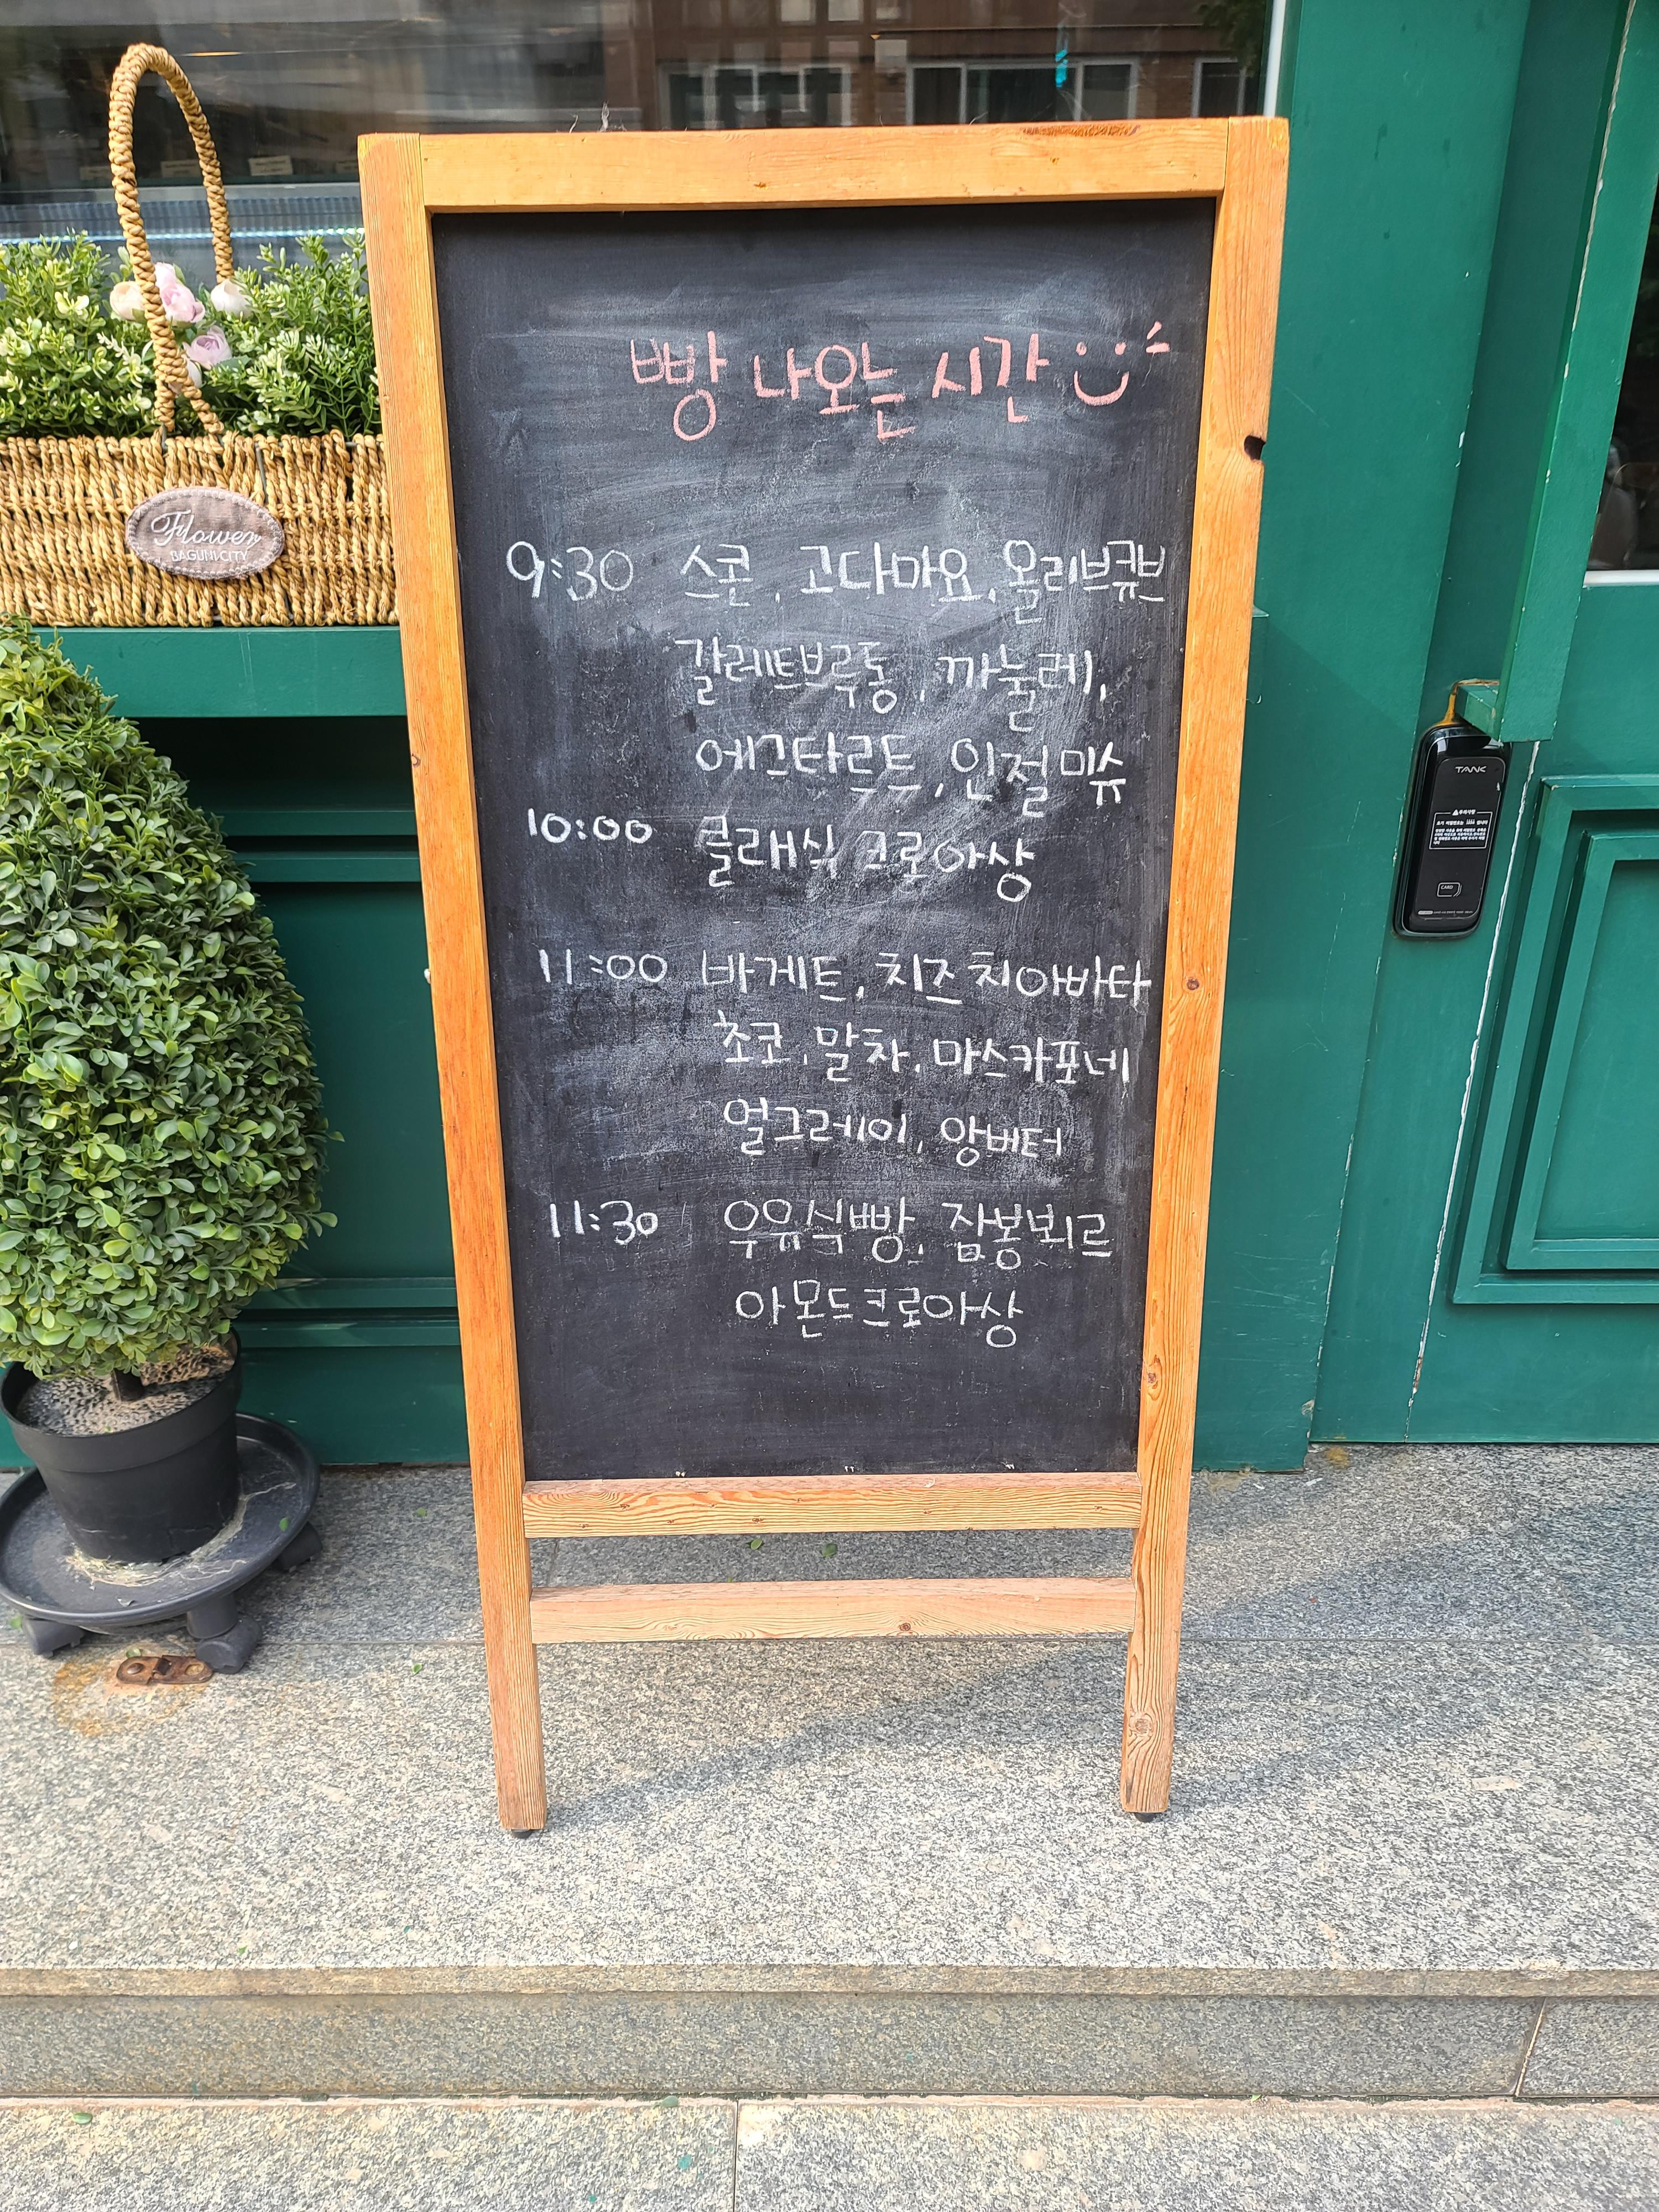 빵 나오는 시간
9:30 스콘, 고다마요, 올리브큐브
갈레트브루통, 까눌레,
에그타르트, 인절미슈
10:00 클래식 크로아상
11:00 바게트, 치즈치아바타
초코, 말차, 마스카포네
얼그레이, 앙버터
11:30 우유식빵, 잠봉뵈르
아몬드크로아상
Flower
BAGUNI CITY
TANK
CARD